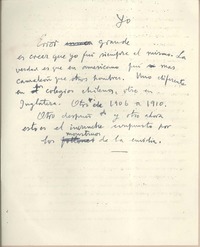 Yo
Error grande
es creer que yo fuí siempre el mismo. La
verdad es que en americano fuí más
camaleón que otros hombres. Uno diferente
en colegios chilenos, otro en
Inglaterra. Otro de 1906 a 1910.
Otro después y otro ahora
esto es el invunche compuesto por
los monstruos de la envidia.